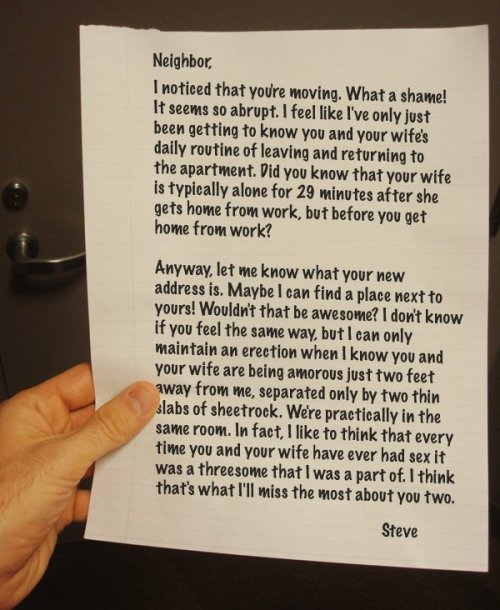 Neighbor,
I noticed that you're moving. What a shame!
It seems so abrupt. I feel like I've only just
been getting to know you and your wife's
daily routine of leaving and returning to
the apartment. Did you know that your wife
is typically alone for 29 minutes after she
gets home from work, but before you get
home from work?
Anyway, let me know what your new
address is. Maybe I can find a place next to
yours! Wouldn't that be awesome? I don't know
if you feel the same way, but I can only
maintain an erection when I know you and
your wife are being amorous just two feet
away from me, separated only by two thin
slabs of sheetrock. We're practically in the
same room. In fact, I like to think that every
time you and your wife have ever had sex it
was a threesome that I was a part of. I think
that's what I'll miss the most about you two.
Steve